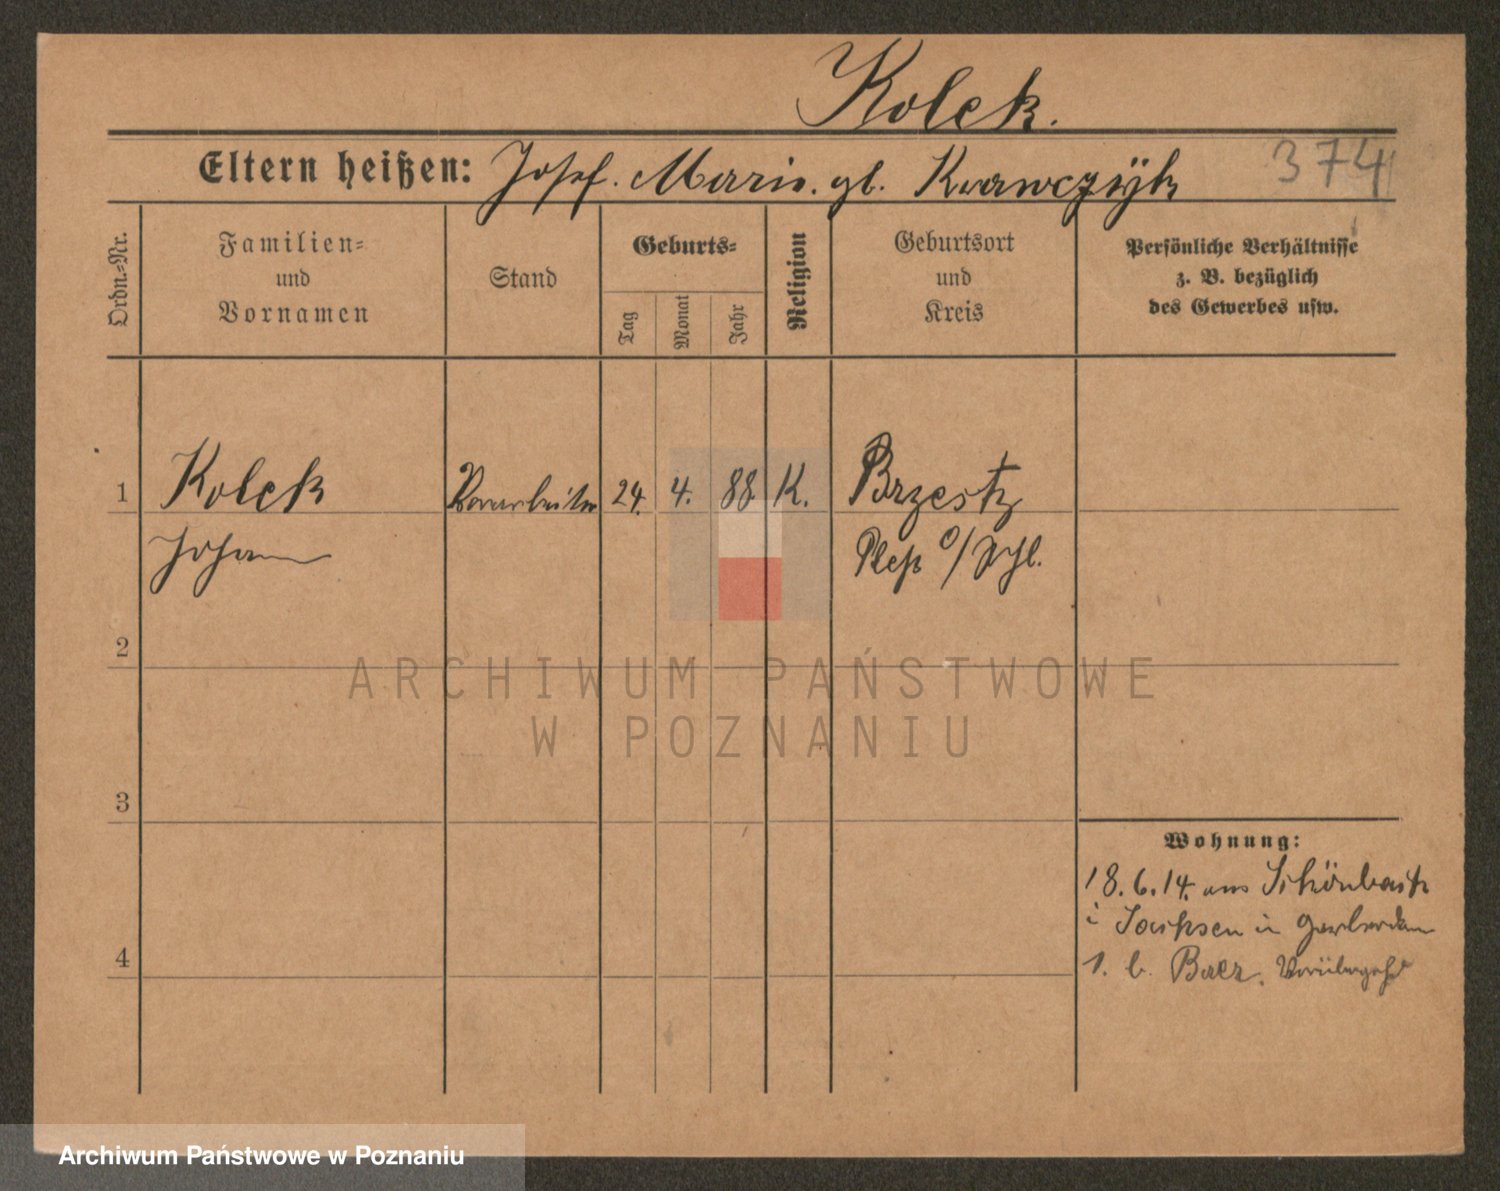 Kolek.
Eltern heißen: Josef. Marie. gb. Krawczÿk
374
Ordn.=Nr.
Familien=
und
Vornamen
Stand
Geburts=
Tag
Monat
Jahr
Religion
Geburtsort
und
Kreis
Persönliche Verhältnisse
z. B. bezüglich
des Gewerbes usw.
1
Kolek
Vorarbeiter
24.
4.
88.
K.
Brzestz
Johann
Pleß O/Schl.
2
ARCHIWUM PAŃSTWOWE
W POZNANIU
3
Wohnung:
18.6.14. aus Schönbach
i Sachsen in
4
1. b. Baer. Vorübergehd
Archiwum Państwowe w Poznaniu